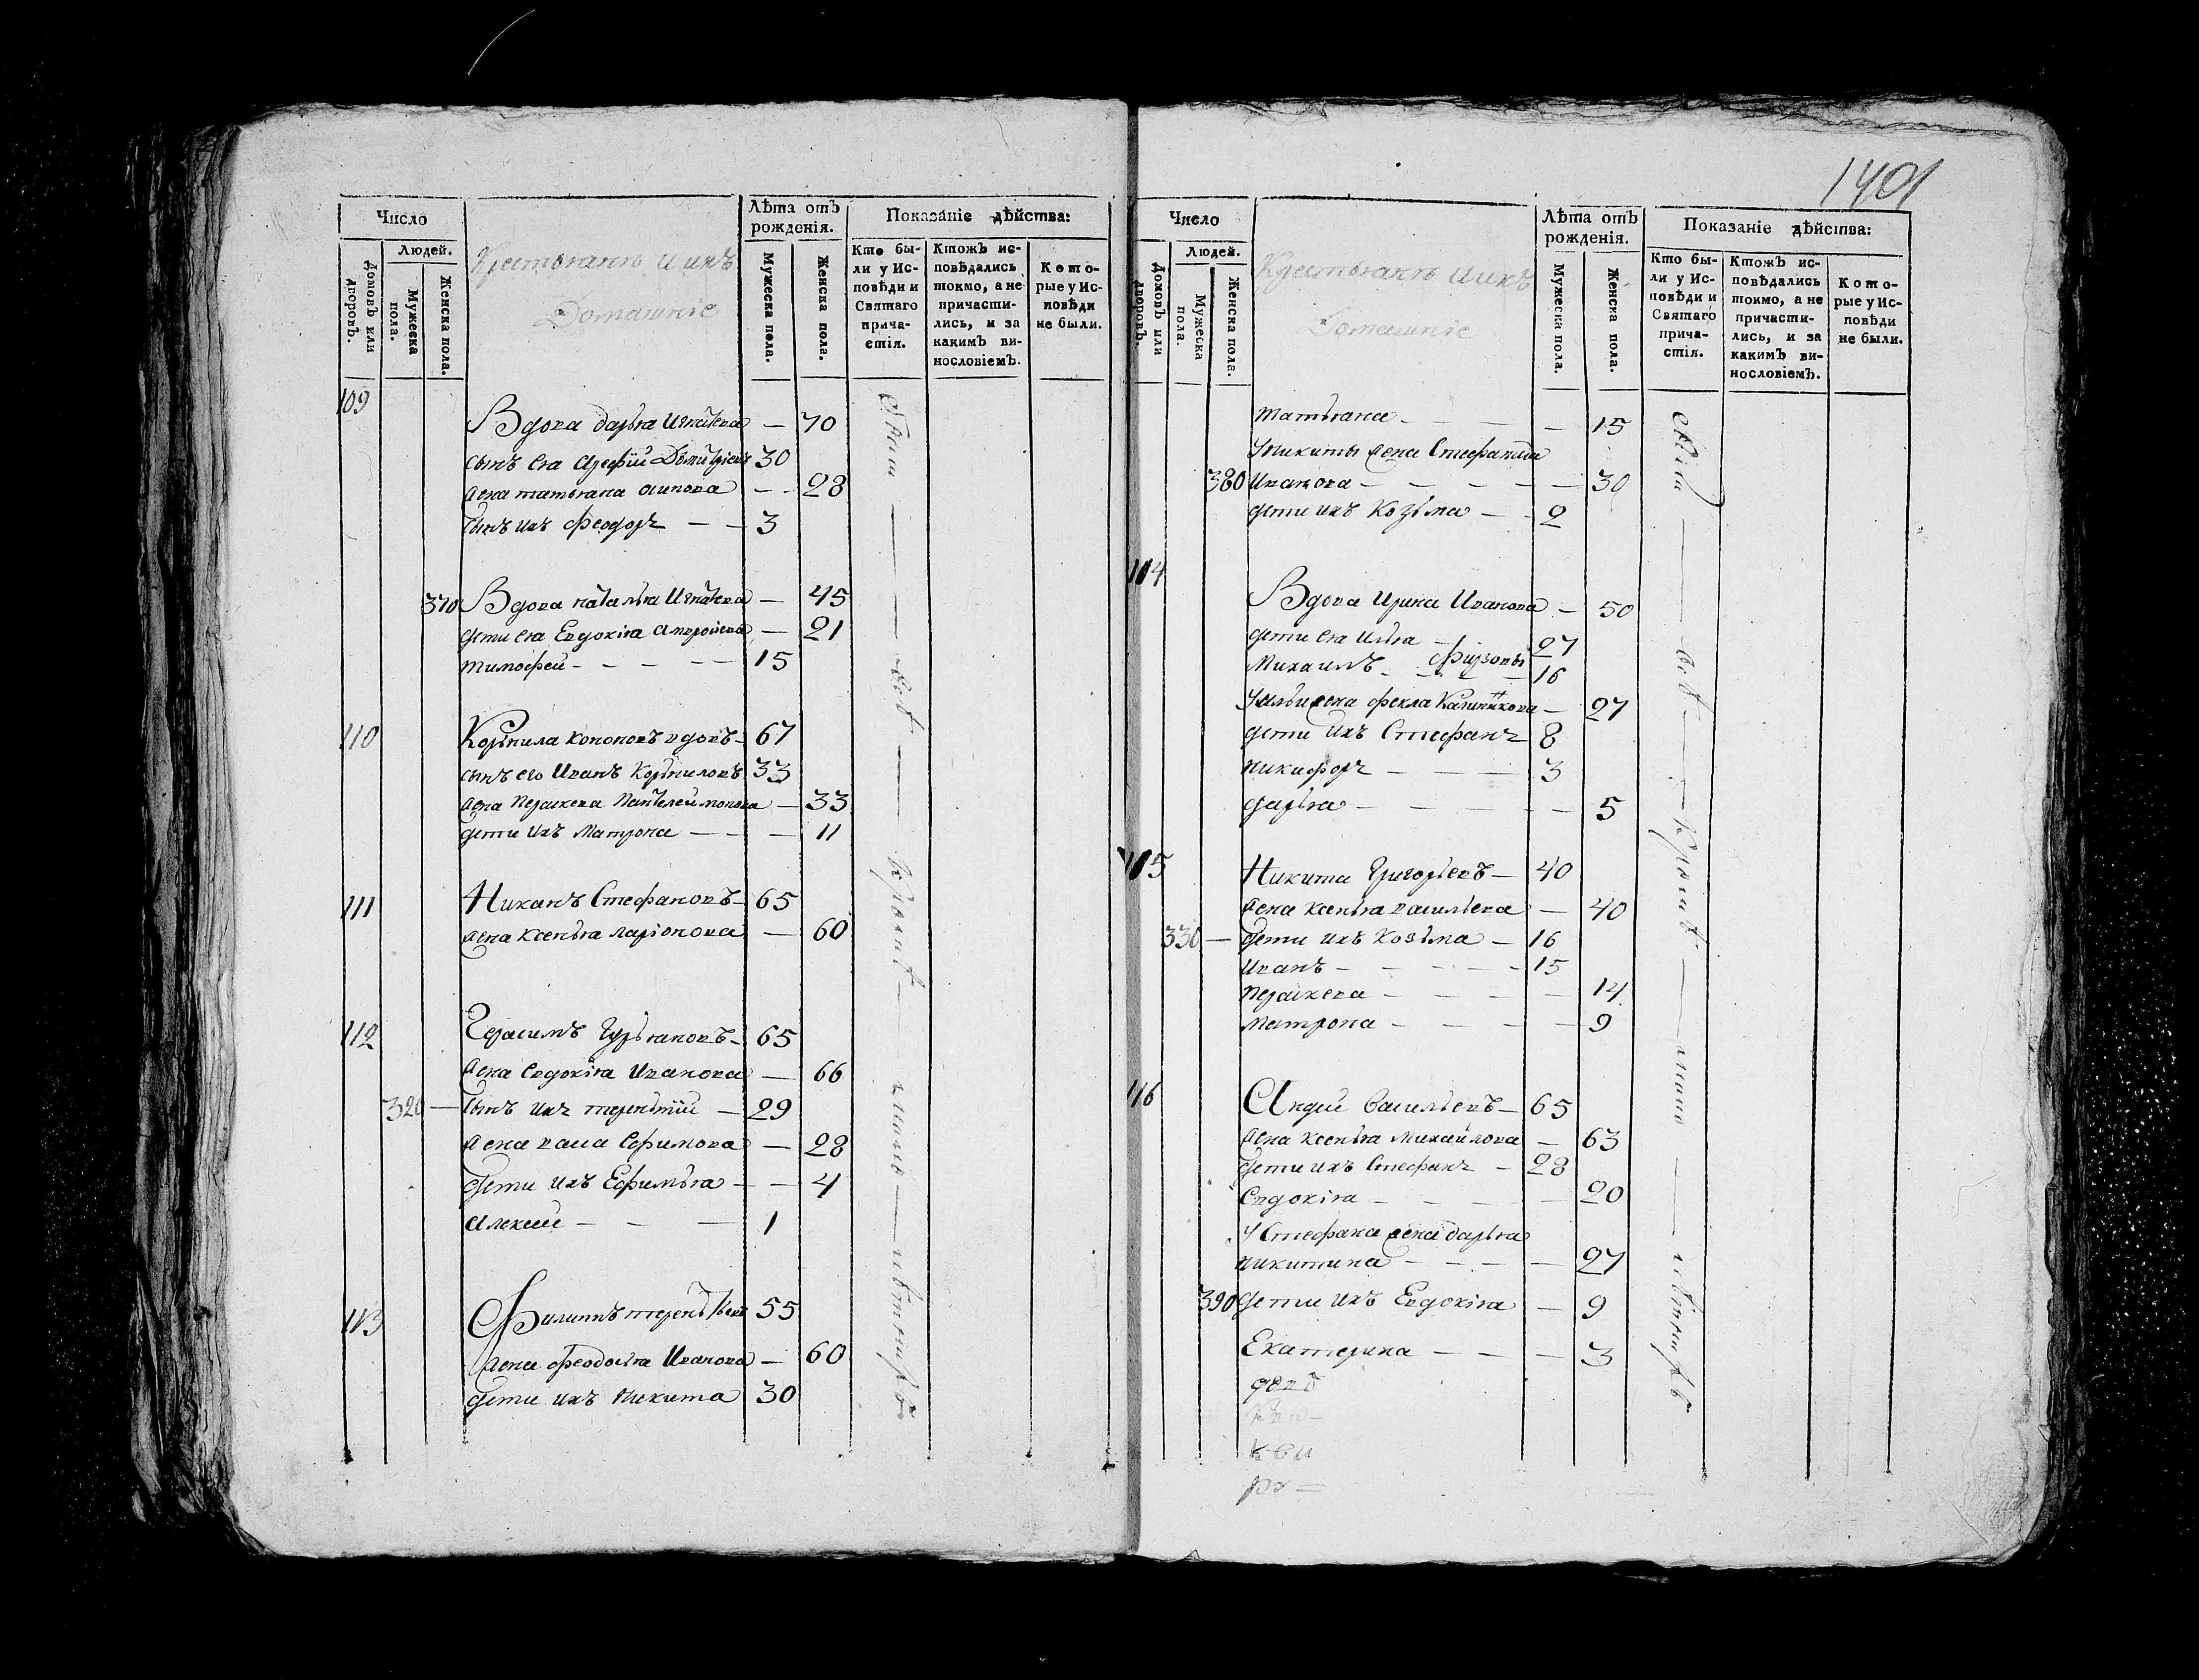 1401
Число
Людей.
Домовъ или дворовъ.
Мужеска пола.
Женска пола.
Крестьянъ и ихъ
Домашніе
Лѣта отъ рожденія.
Мужеска пола.
Женска пола.
Показаніе дѣйства:
Кто были у Исповѣди и Святаго причастія.
Ктожъ исповѣдались токмо, а не причастились, и за какимъ винословіемъ.
Которые у Исповѣди не были.
109
Вдова дарья Игнатьева — 70
сынъ ея Арефій Дѣмитріевъ 30
жена татьяна — — 28
сынъ ихъ Феодоръ — — 3
310 Вдова наталья Игнатьева — 45
дети ея Евдокія — 21
тимофей — — — — — 15
110 Корнила кононовъ вдовъ — 67
сынъ его Иванъ Корниловъ 33
жена параскева Пантелеймонова — 33
дети ихъ Матрона — — — 11
111 Никанъ Стефановъ — 65
жена ксенья ларіонова — 60
112 Герасимъ Гурьяновъ — 65
жена Евдокія Иванова — 66
320 — сынъ ихъ терентій — 29
жена васа Ефимова — 28
дети ихъ Ефимья — — 4
Алексей — — — 1
113 Филиппъ терентьевъ 55
жена феодосья Иванова — 60
дети ихъ никита 30
Число
Людей.
Домовъ или дворовъ.
Мужеска пола.
Женска пола.
Крестьянъ и ихъ
Домашніе
Лѣта отъ рожденія.
Мужеска пола.
Женска пола.
Показаніе дѣйства:
Кто были у Исповѣди и Святаго причастія.
Ктожъ исповѣдались токмо, а не причастились, и за какимъ винословіемъ.
Которые у Исповѣди не были.
татьяна — — — — 15
У никиты жена Стефанида
380 Иванова — — — — — 30
дети ихъ Козьма — — 2
114
Вдова Ирина Иванова — 50
дети ея Илья — 27
Михаилъ — Фирсовы 16
У ильи жена фекла Калинникова — 27
дети ихъ Стефанъ 8
никифоръ — — — 3
дарья — — — — 5
115 Никита Григорьевъ — 40
жена ксенья васильева — 40
330 — дети ихъ Козьма — 16
Иванъ — — — — — 15
параскева — — — — 14
матрона — — — — 9
116 Андрей васильевъ — 65
жена ксенья михайлова — 63
дети ихъ Стефанъ — 28
Евдокія — — — — 20
У Стефана жена дарья
никитина — — — — 27
390 дети ихъ Евдокія — 9
Екатерина — — — — 3